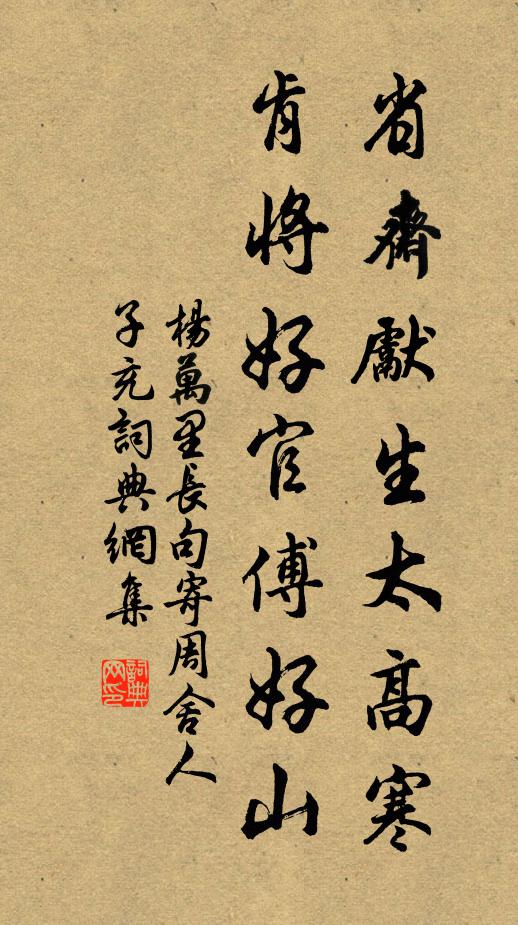 省齋獻生太高寒
肯將好官傅好山
楊萬里長句寄周舍人
子充詞典網集
詞典
网印